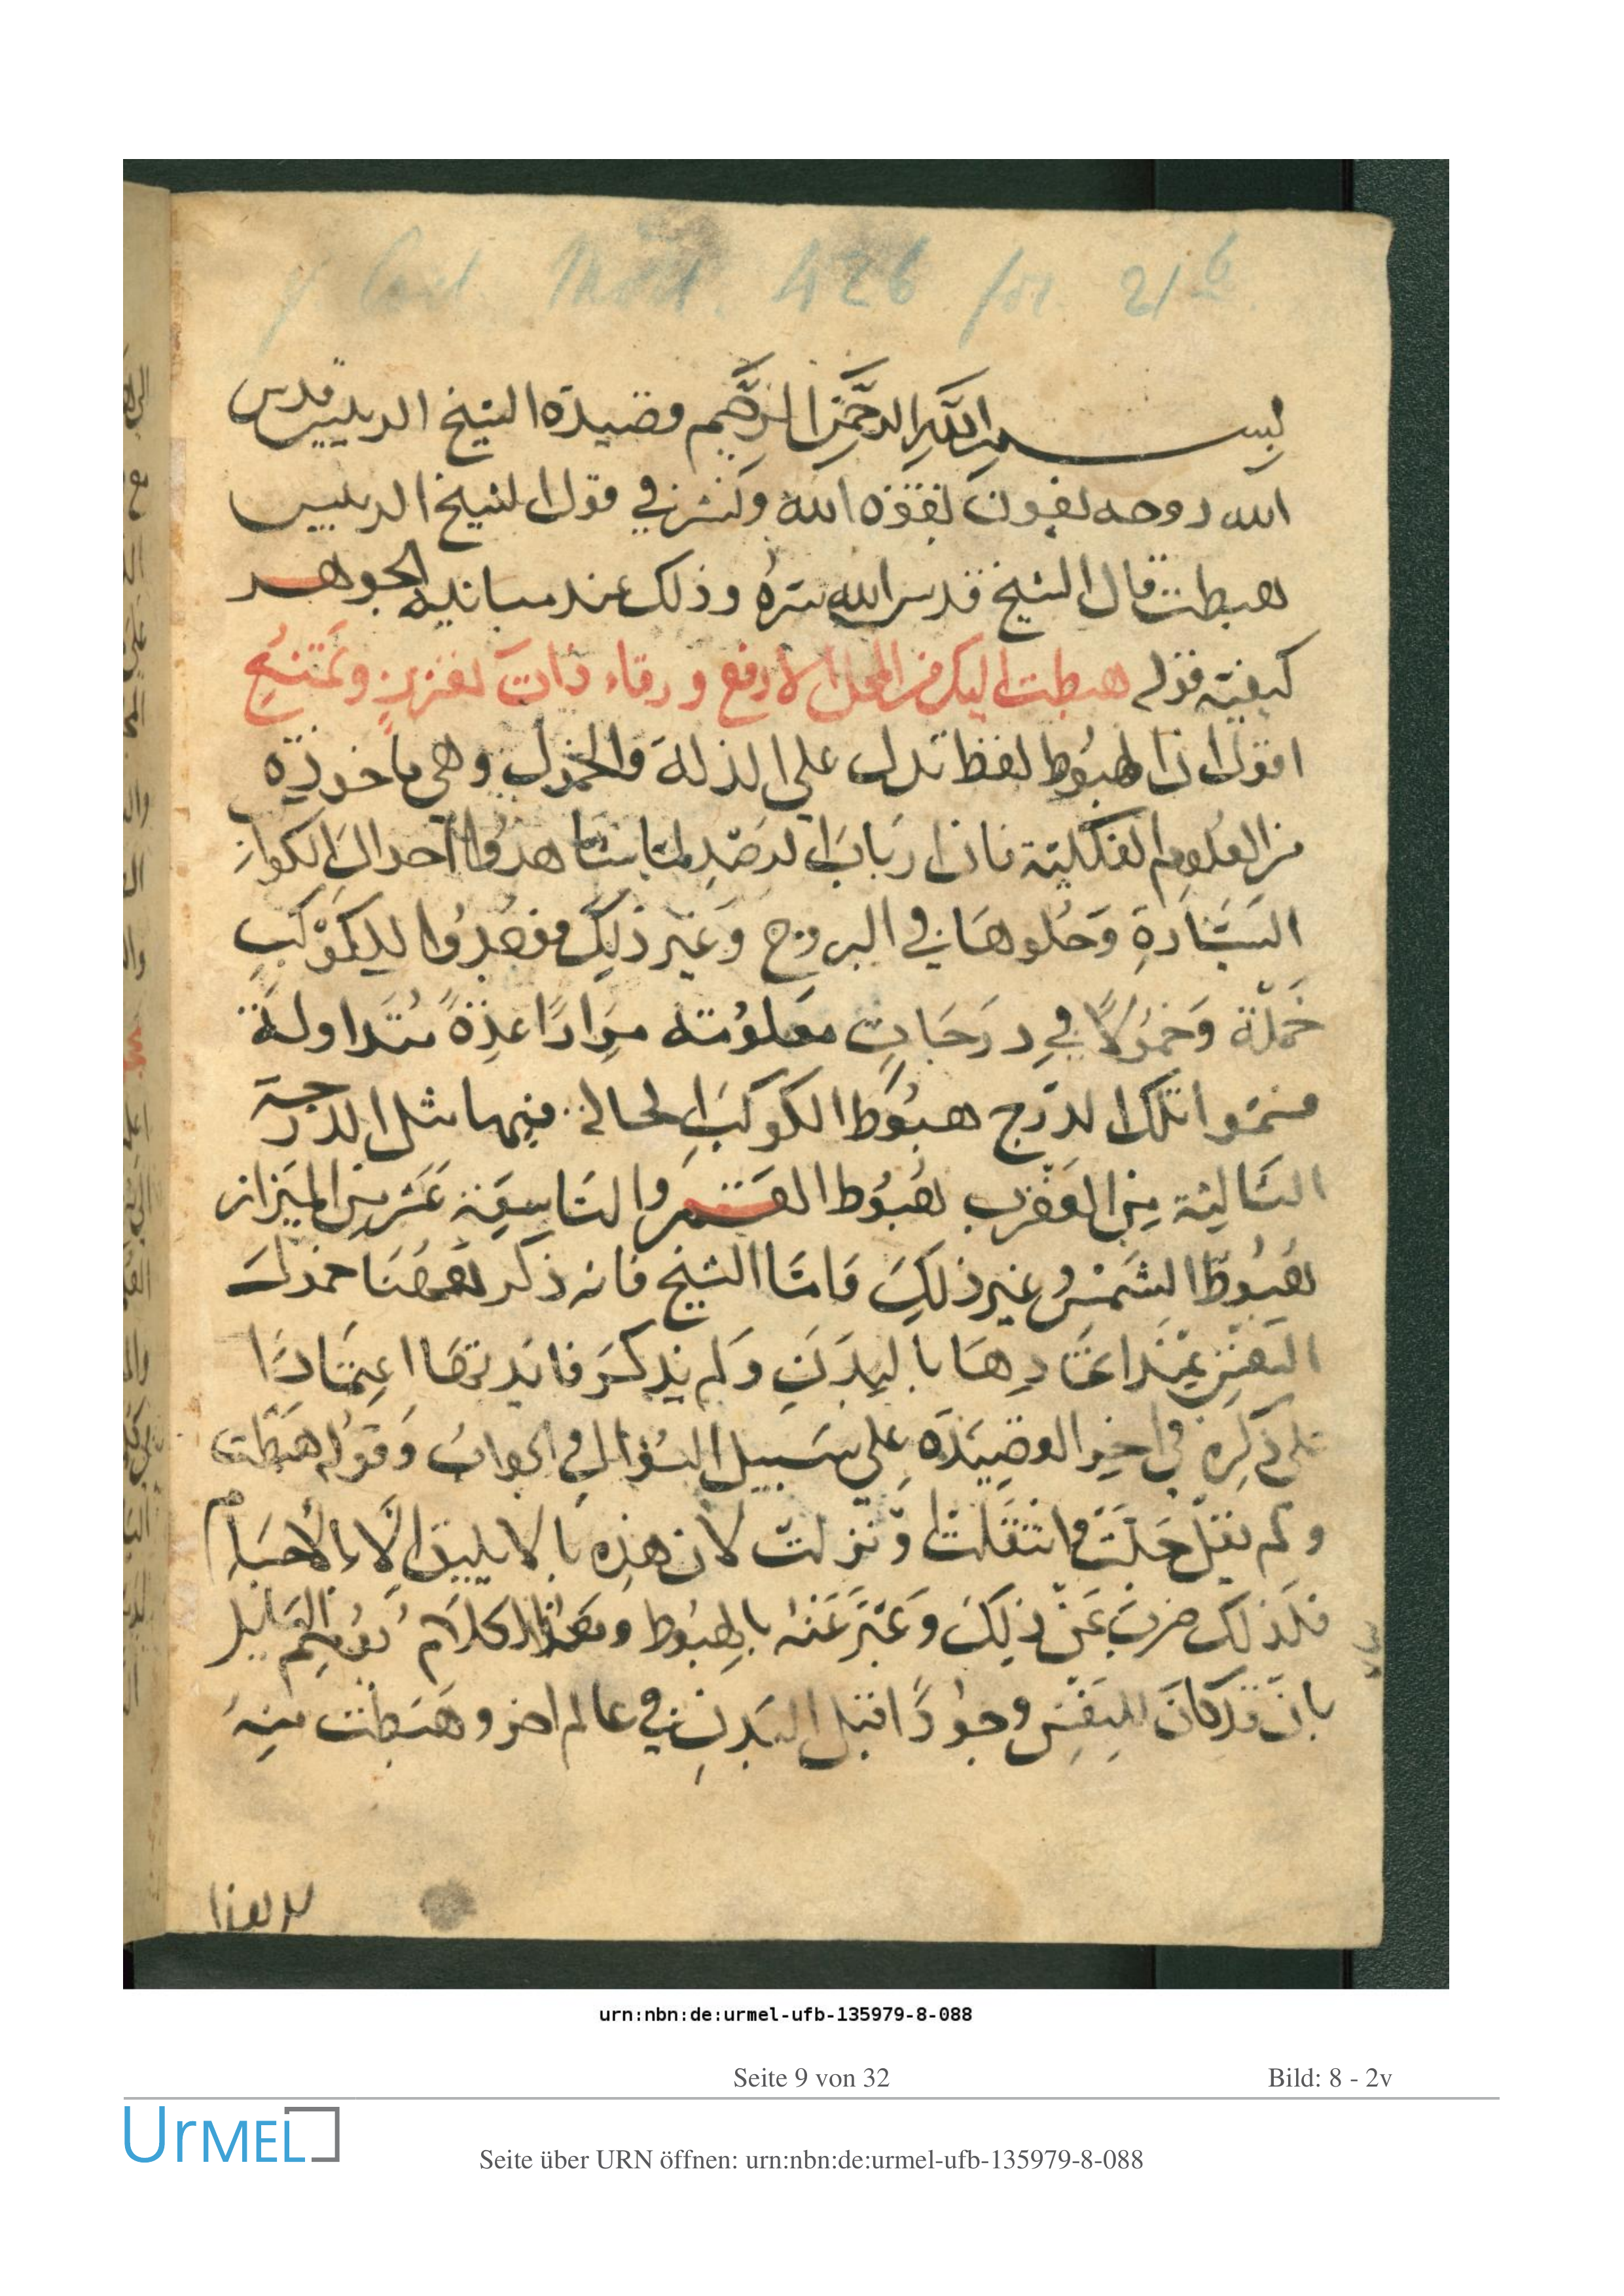 بسم الله الرحمن الرحيم قصيدة الشيخ الرييس قدس
الله روحه بعون بقوة الله ونشر في قول الشيخ الرييس
هبطت قال الشيخ قدس الله سره وذلك عند مباينة الجوهر
كيفية قوله هبطت اليك من المحل الارفع ورقاء ذات تعزز وتمنع
اقول ان الهبوط لفظ تدل على الذلة والخمول وهي ماخوذة
من العلوم الفلكية فان ارباب الرصد لما شاهدوا احوال الكواكب
السيارة وحلوها في البروج وغير ذلك فوجدوا للكوكب
خملة وخمولا في درجات معلومة مرارا عدة متداولة
فسموا تلك الدرج هبوط الكوكب الحال فيها مثل الدرجة
الثالثة من العقرب هبوط القمر والتاسعة عشر من الميزان
هبوط الشمس وغير ذلك فاما الشيخ فانه ذكر هاهنا خمول
النفس عند اتحادها بالبدن ولم يذكر فائدتها اعتمادا
على ذكره في اخر القصيدة على سبيل السؤال في الجواب وقوله هبطت
ولم يقل حلت وانتقلت ونزلت لان هذه لا يليق الا بالاجسام
فلذلك ضرب عن ذلك وعبر عنه بالهبوط وهذا الكلام
بان قد كان للنفس وجودا قبل البدن في عالم اخر وهبطت منه
urn:nbn:de:urmel-ufb-135979-8-088
Seite 9 von 32 Bild: 8 - 2v
UrMEL
Seite über URN öffnen: urn:nbn:de:urmel-ufb-135979-8-088